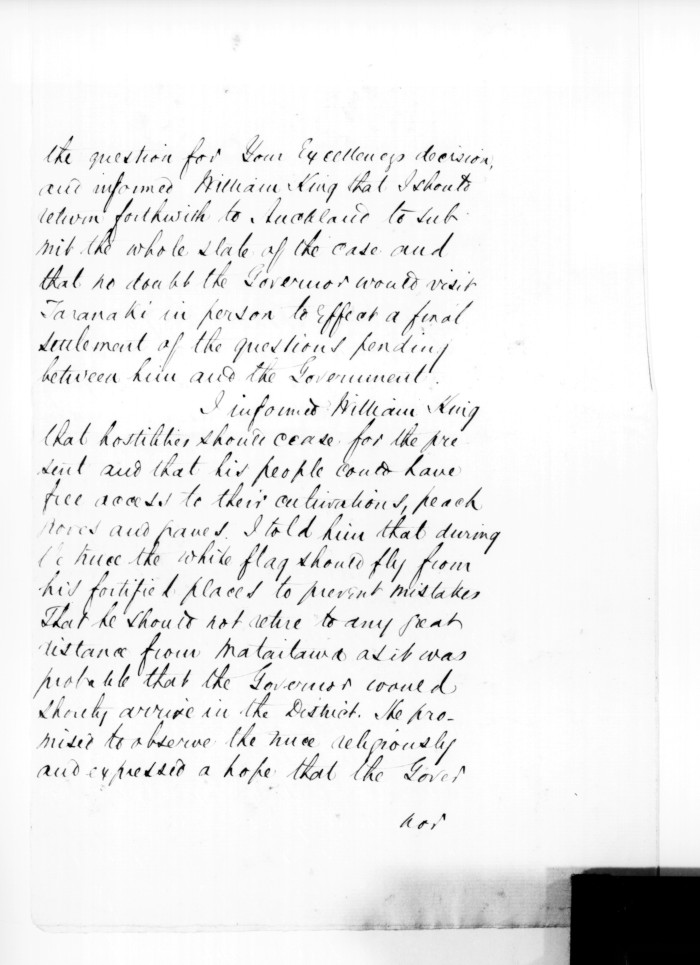 the question for Your Excellencys decision,
and informed William King that I should
return forthwith to Auckland to sub
mit the whole state of the case and
that no doubt the Governor would visit
Taranaki in person to effect a final
settlement of the questions pending
between him and the Government.
I informed William King
that hostilities should cease for the pre
sent and that his people could have
free access to their cultivations, peach
groves and graves. I told him that during
the truce the white flag should fly from
his fortified places to prevent mistakes
That he should not retire to any great
distance from Mataitawa as it was
probable that the Governor would
shortly arrive in the District. He pro-
mised to observe the truce religiously
and expressed a hope that the Gover
nor